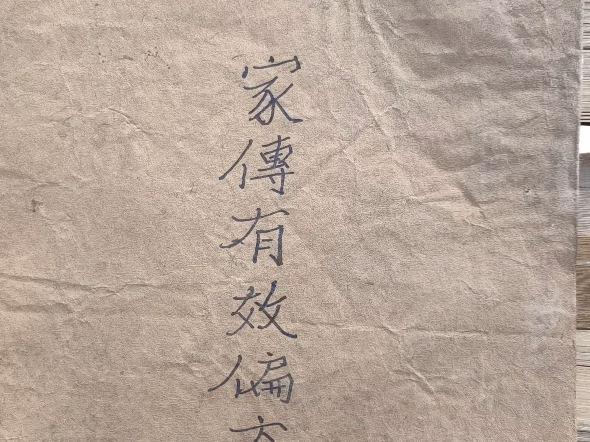 家傳有效偏方